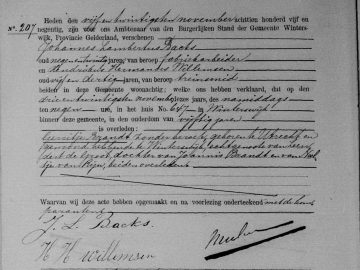 Nº 207
Heden den vijf en twintigsten november achttien honderd vijf en
negentig, zijn voor ons Ambtenaar van den Burgerlijken Stand der Gemeente Winters-
wijk, Provincie Gelderland, verschenen:
Johannes Lambertus Backs
van negen en twintig jaren, van beroep fabriekarbeider
en Hendrikus Hermanus Willemsen
van vijf en dertig jaren, van beroep treinsmid
beiden in deze Gemeente woonachtig; welke ons hebben verklaard, dat op
drie en twintigsten november dezes jaars, des namiddags
ten negen ure, in het huis No. 647 in Winterswijk
binnen deze gemeente, in den ouderdom van vijftig jaren
is overleden:
Brandt zonder beroep, geboren te Utrecht en
gewoond hebbende te Winterswijk, echtgenoote van
de Groot, dochter van Johannis Brandt en van
van Rijn, beiden overleden.
Waarvan wij deze acte hebben opgemaakt en na voorlezing onderteekend met de com-
paranten
J. L. Backs
H H willemsen